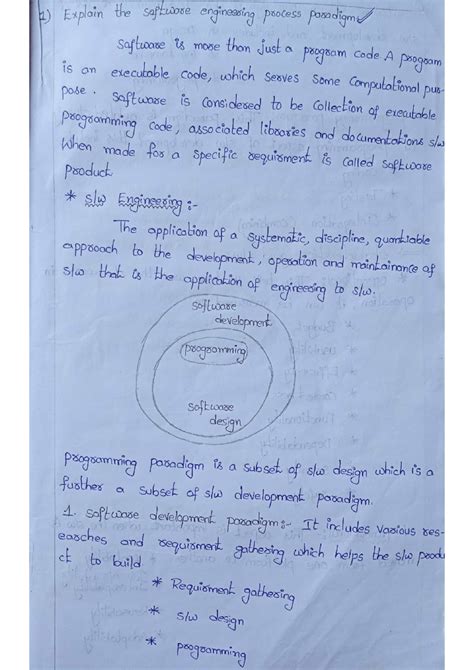 1) Explain the software engineering process paradigm
Software is more than just a program code A program
is an executable code, which serves some computational pur-
pose. Software is considered to be collection of executable
programming code, associated libraries and documentations s/w
When made for a specific requirment is called software
product
* s/w Engineering :-
The application of a systematic, discipline, quantiable
approach to the development, operation and maintainance of
s/w that is the application of engineering to s/w.
software
development
programming
software
design
programming paradigm is a subset of s/w design which is a
further a subset of s/w development paradigm.
1. software development paradigm:- It includes various res-
earches and requirment gathering which helps the s/w produ
ct to build
* Requirment gathering
* s/w design
* programming